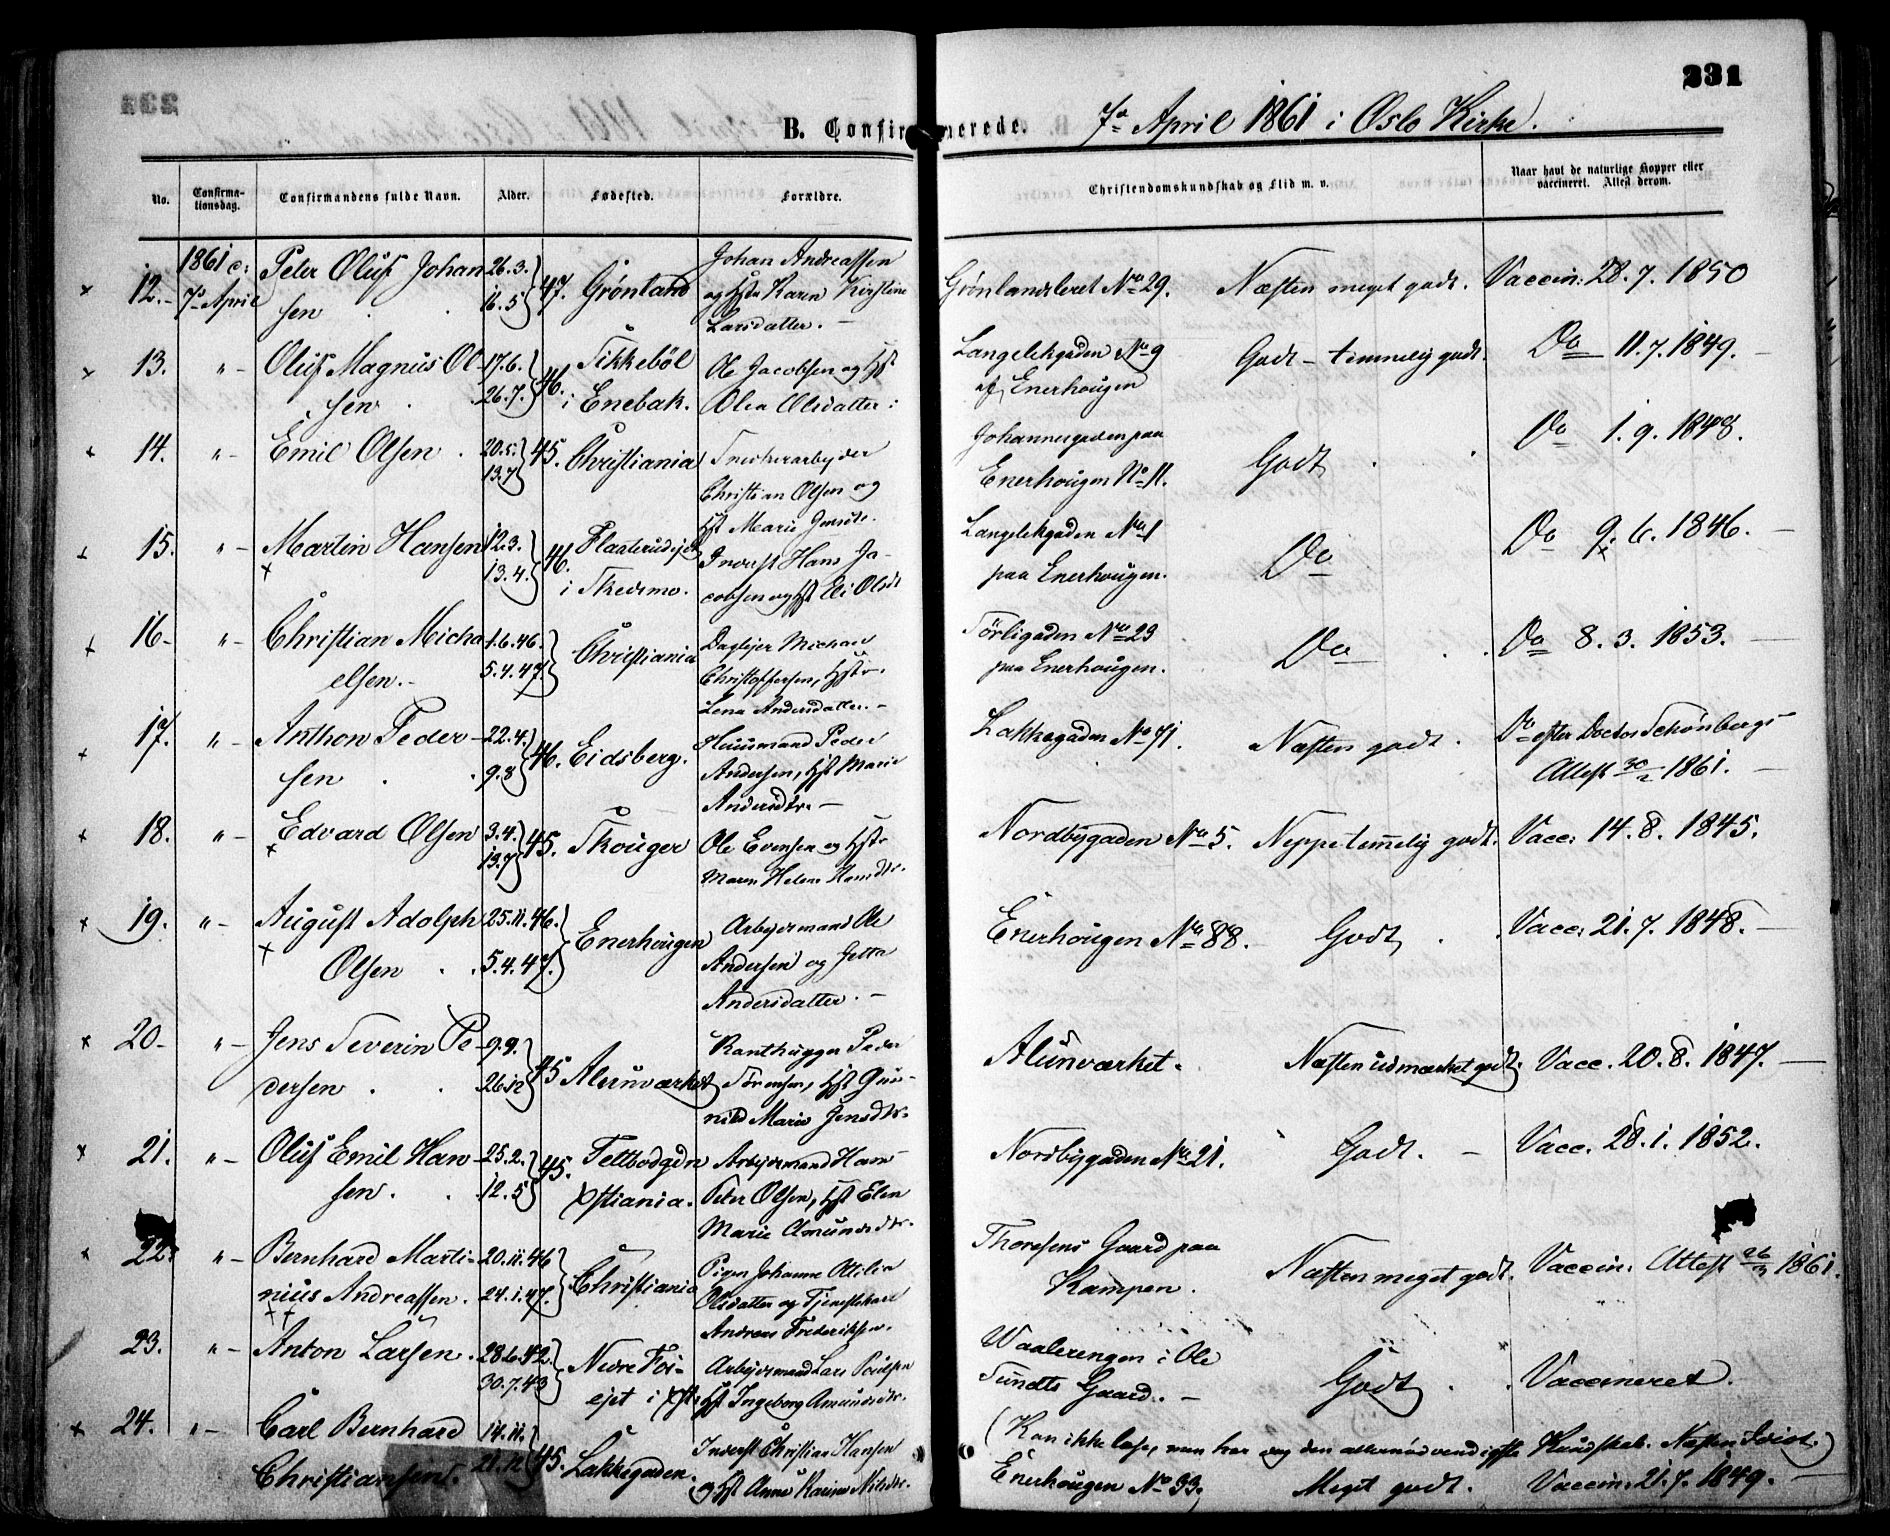 231
B. Confirmerede. 7de April 1861 i Oslo Kirke.
No.
Confirma-
tionsdag.
Confirmandens fulde Navn.
Alder.
Fødested.
Forældre.
Christendomskundskab og Flid m. v.
Naar havt de naturlige Kopper eller
vaccineret. Attest derom.
12. 1861 d: 7de April Peter Oluf Johan 26.3. 47. Grønland Johan Andreassen Grønlandsleret No 29. Næsten meget godt. Vaccin: 28.7.1850
sen 16.5 og Hstr Karen Kirstine
Larsdatter.
13. " Oluf Magnus Ol- 17.6. 46. Ole Jacobsen og Hst Langelekgaden No 9 Godt - temmelig godt. Do 11.7.1849.
sen 26.7. i Enebak. Olea Olsdatter: af Enerhougen
14. " Emil Olsen 20.5. 45. Christiania Snedkerarbejder Johannesgaden paa Godt Do 1.9.1848.
13.7 Christian Olsen og Enerhougen No 11.
Hst Marie
15. " Martin Hansen 12.3. 46. Inderst Hans Ja- Langelekgaden No 1 Do Do 9.6.1846.
13.4. i Skedsmo. cobsen og Hst Eli Olsdt paa Enerhougen.
16 " Christian Micha 1.6.46. Christiania Daglejer Michael Törligaden No 23 Do Do 8.3.1853.
elsen. 5.4.47. Christoffersen, Hstr. paa Enerhougen.
Lena Andersdatter.
17. " Anthon Peder- 22.4. 46. Eidsberg. Huusmand Peder Lakkegaden No 71. Næsten godt. Do efter Doctor Schønbergs
sen 9.8 Andersen, Hst Marie Attest 1861.
Andersdtr.
18. " Edvard Olsen 3.4. 45. Skouger Ole Evensen og Hst. Nordbygaden No 5. Neppe temelig godt. Vacc: 14.8.1845.
13.7 Maren Helene Hansdtr.
19. " August Adolph 25.11.46. Enerhougen Arbejdsmand Ole Enerhougen No 88. Godt Vacc. 21.7.1848.
Olsen 5.4.47. Andersen og
Andersdatter.
20 " Jens Severin Pe- 9.9. 45 Alunværket Peder Alunværket. Næsten udmærket godt. Vacc. 20.8.1847.
dersen 26.12 Sörensen, Hst Gun-
nild Marie Jensdtr.
21. " Oluf Emil Han- 25.2. 45. Arbejdsmand Hans Nordbygaden No 21. Godt. Vacc. 28.1.1852.
sen. 12.5 Xstiania. Peter Olsen, Hst Elen
Marie Amundsdtr.
22. " Bernhard Marti- 20.11.46 Christiania Pigen Johanne Otilia Thoresens Gaard paa Næsten meget godt. Vaccin. Attest 26/3 1861.
nius Andreassen. 24.1.47. Olsdatter og Tjenestekarl Kampen.
Andreas Frederiksen.
23. " Anton Larsen. 28.6.42. Nedre Foi- Arbejdsmand Lars Poulsen Waalerengen i Ole Godt Vaccineret.
30.7.43 ejet i Xst: Hst Ingeborg Amundsdtr. Sundts Gaard.
(Kan ikke læse, men har dog den allernødvendigste Kundskab. Næsten Idiot.)
24. " Carl Bernhard 14.11. 45. Lakkegaden. Inderst Christian Hansen Enerhougen No 33. Meget godt. Vaccin. 21.7.1849.
Christiansen. 21.12 og Hst Anne Karine Nilsdtr.